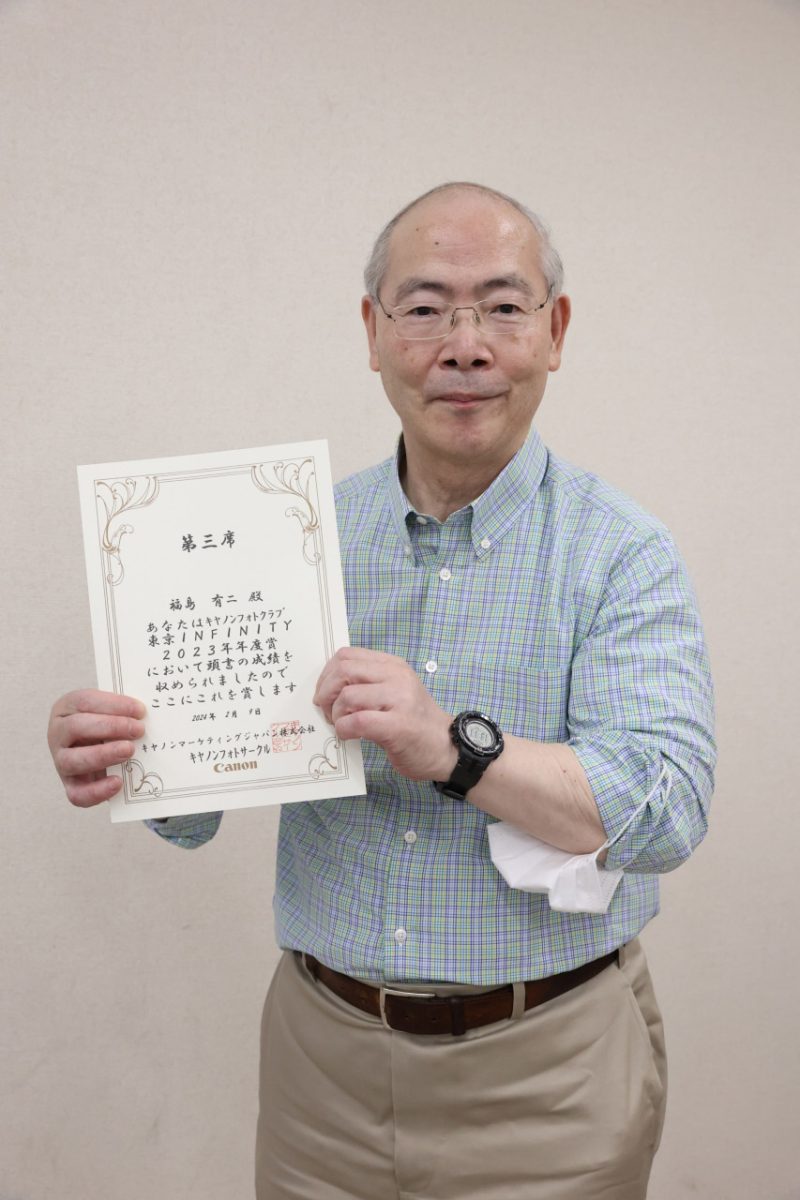 第三席
福島 有二 殿
あなたはキヤノンフォトクラブ
東京INFINITY
2023年年度賞
において頭書の成績を
収められましたので
ここにこれを賞します
2024年 2月 9日
キヤノンマーケティングジャパン株式会社
キヤノンフォトサークル
Canon